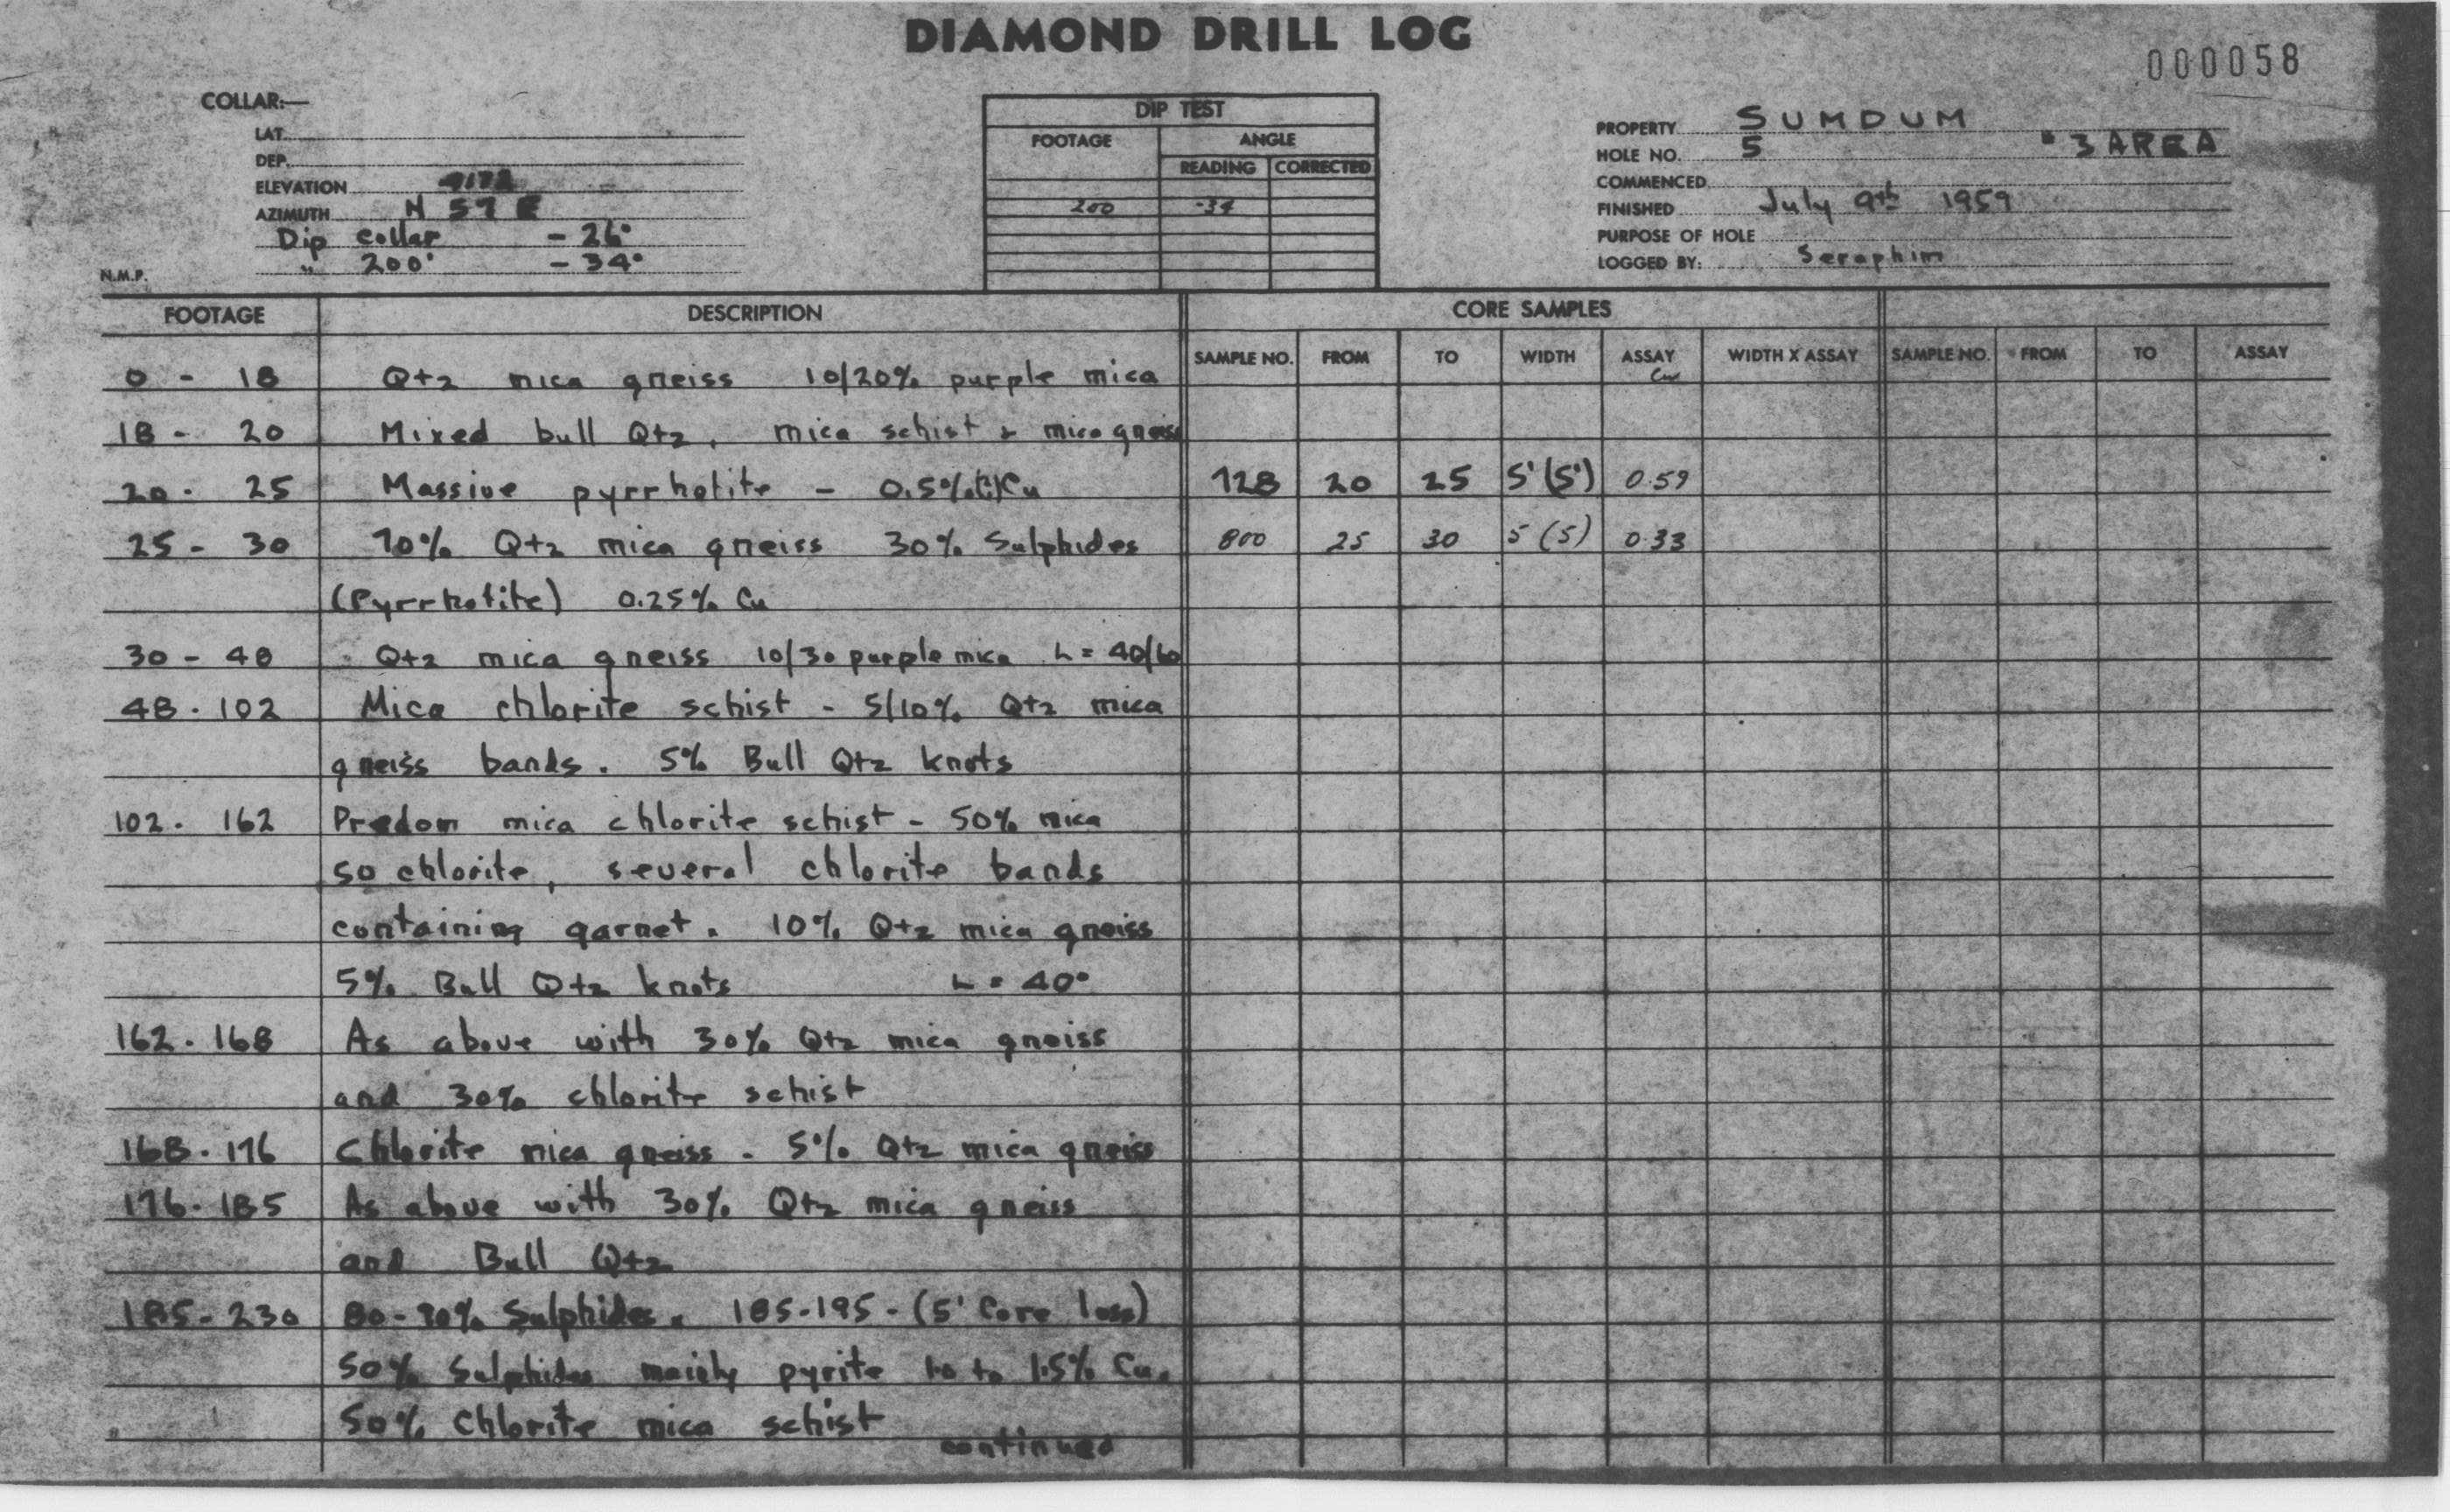 DIAMOND DRILL LOG
000058
COLLAR:—
LAT.
DEP.
ELEVATION
AZIMUTH N 57 E
Dip collar - 26°
" 200' - 34°
N.M.P.
DIP TEST
FOOTAGE ANGLE
READING CORRECTED
200 -34
PROPERTY SUMDUM
HOLE NO. 5 "3 AREA
COMMENCED
FINISHED July 9th 1959
PURPOSE OF HOLE
LOGGED BY: Seraphim
FOOTAGE DESCRIPTION CORE SAMPLES
SAMPLE NO. FROM TO WIDTH ASSAY Cu WIDTH X ASSAY SAMPLE NO. FROM TO ASSAY
0 - 18 Qtz mica gneiss 10/20% purple mica
18 - 20 Mixed bull Qtz, mica schist & mica gneiss
20 - 25 Massive pyrrhotite - 0.5% Cu 128 20 25 5' (5') 0.59
25 - 30 70% Qtz mica gneiss 30% Sulphides 800 25 30 5 (5) 0.33
(Pyrrhotite) 0.25% Cu
30 - 48 Qtz mica gneiss 10/30 purple mica L = 40/60
48 - 102 Mica chlorite schist - 5/10% Qtz mica
gneiss bands. 5% Bull Qtz knots
102 - 162 Predom mica chlorite schist - 50% mica
50 chlorite, several chlorite bands
containing garnet. 10% Qtz mica gneiss
5% Bull Qtz knots L = 40°
162 - 168 As above with 30% Qtz mica gneiss
and 30% chlorite schist
168 - 176 Chlorite mica gneiss - 5% Qtz mica gneiss
176 - 185 As above with 30% Qtz mica gneiss
and Bull Qtz
185 - 230 Sulphides. 185-195 - (5' Core loss)
50% Sulphides mainly pyrite to 1.5% Cu.
50% Chlorite mica schist
continued